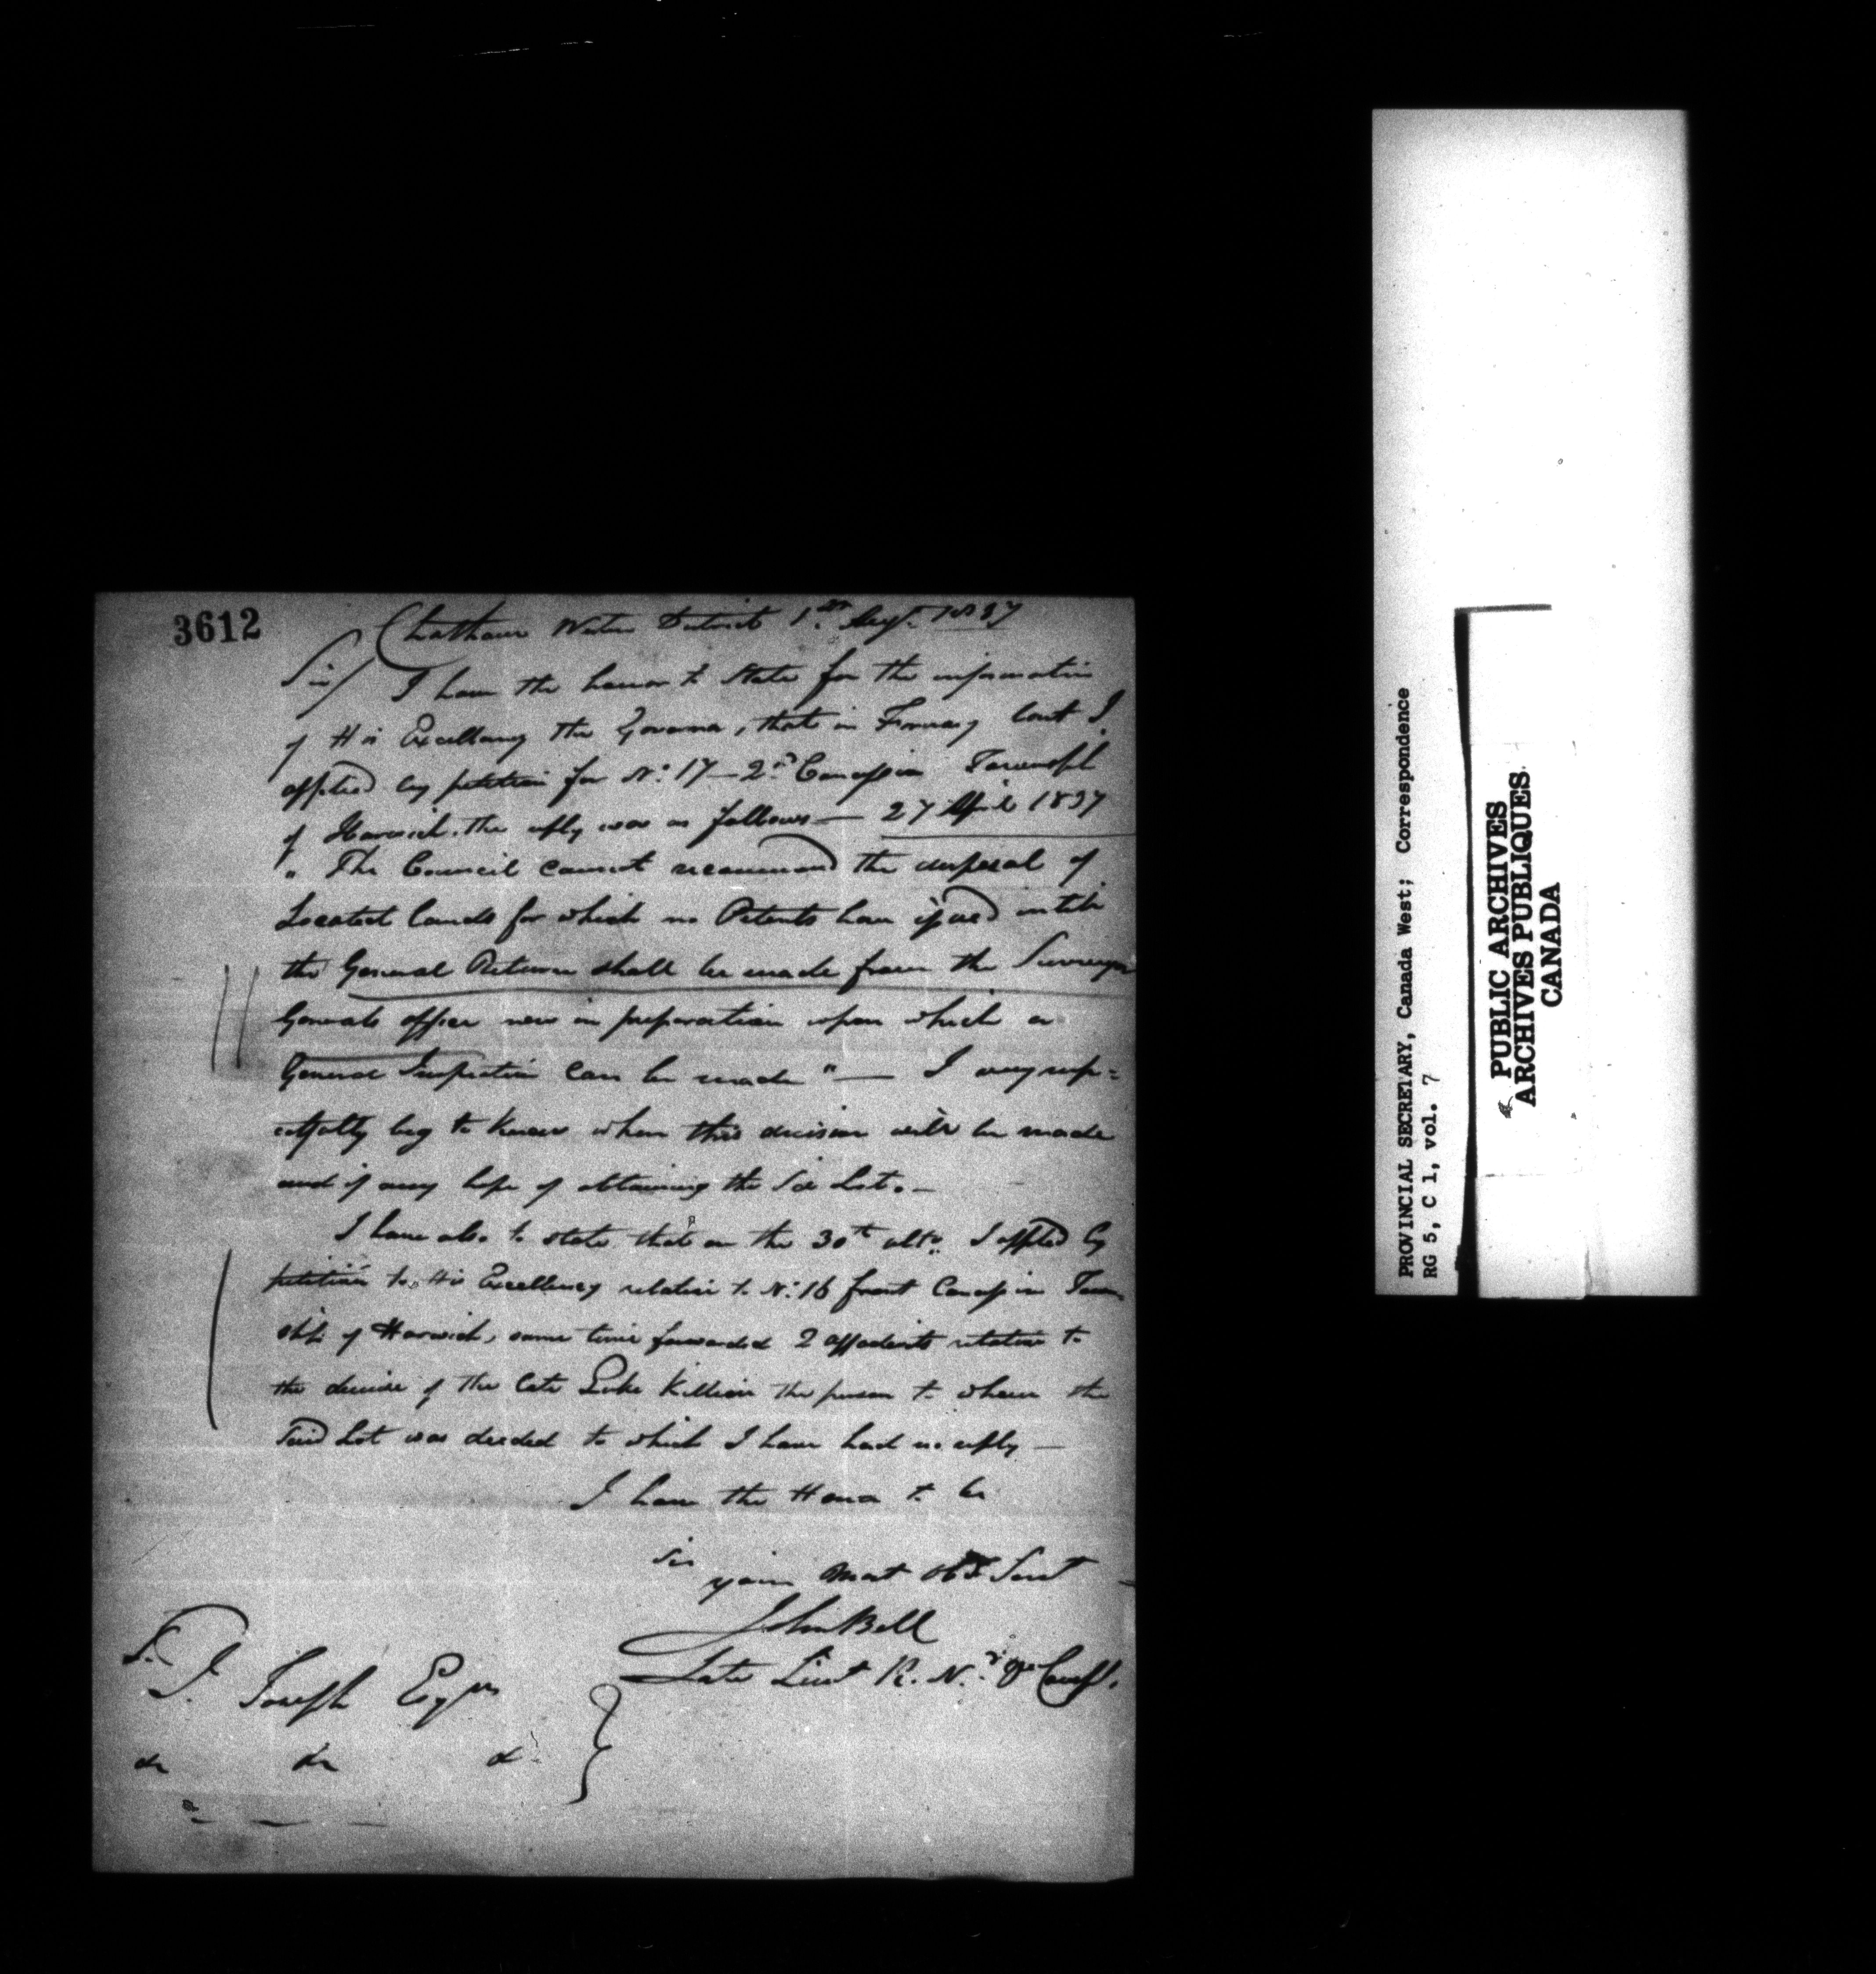 3612
Chatham Western District 1st Augt. 1837
Sir/ I have the honor to State for the information
of His Excellency the Governor, that in last I
applied by petition for No: 17 – 2nd Concession Township
of Harwich. the reply was as follows — 27 April 1837
" The Council cannot recommend the disposal of
Located lands for which no Patents have issued until
the General Return shall be made from the Surveyor
Generals office now in preparation upon which a
General Inspection can be made " — I very resp=
ectfully beg to know when this decision will be made
and if any hope of obtaining the Sd Lot. –
I have also to state that on the 30th ulto. I applied by
petition to His Excellency relative to No: 16 front Concession Town
ship of Harwich, same time forwarded 2 affadavits relative to
the demise of the late Luke Killion the person to whom the
Said Lot was deeded to which I have had no reply —
I have the Honor to be
Sir
your Most Obt Servt
John Bell
Late Lieut R. N.
J. Joseph Esqre
&c &c &c
PROVINCIAL SECRETARY, Canada West; Correspondence
RG 5, C 1, vol. 7
PUBLIC ARCHIVES
ARCHIVES PUBLIQUES
CANADA